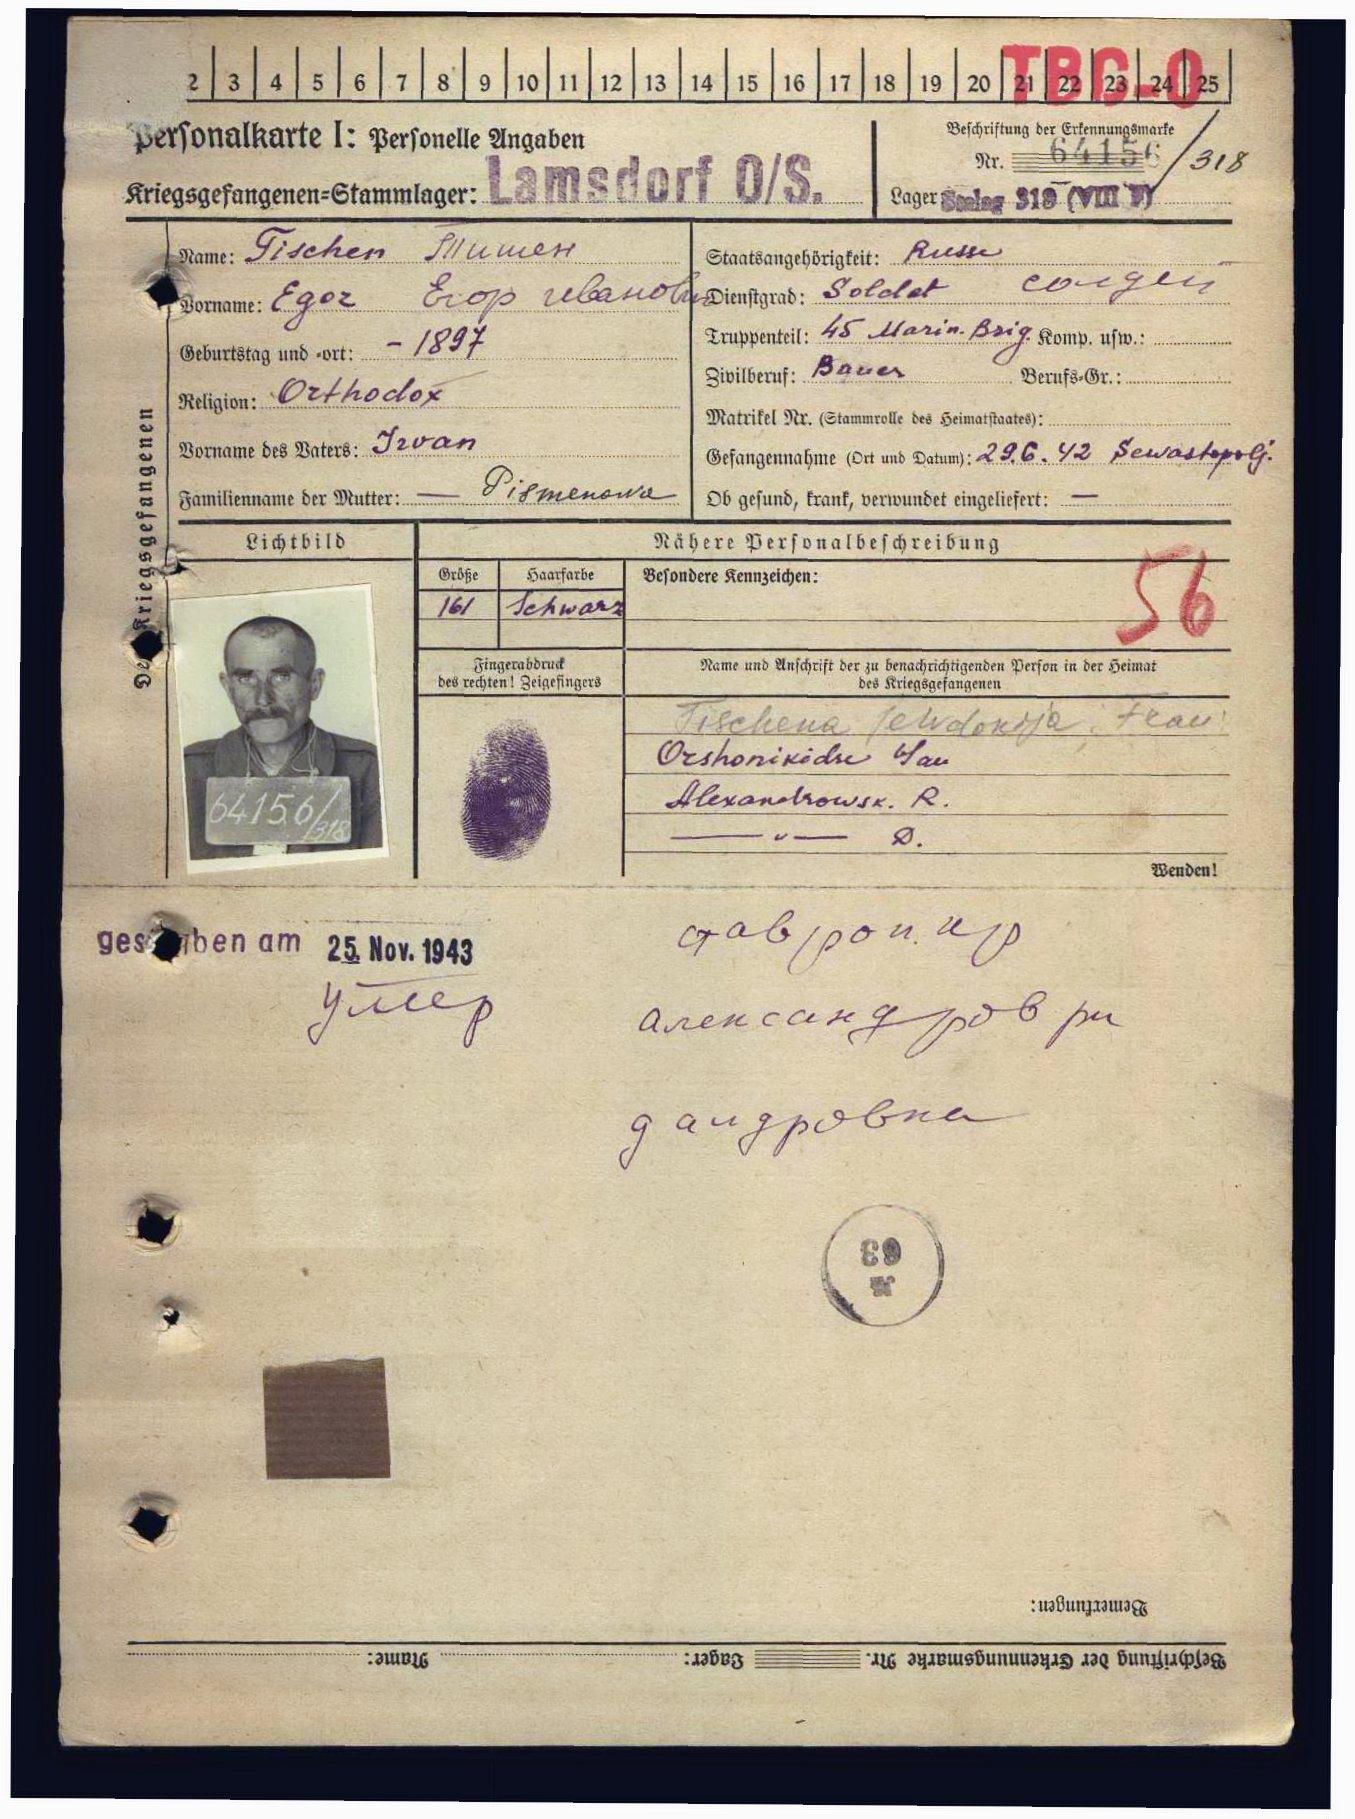 2 3 4 5 6 7 8 9 10 11 12 13 14 15 16 17 18 19 20 21 22 23 24 25
Personalkarte I: Personelle Angaben
Kriegsgefangenen=Stammlager: Lamsdorf O/S.
Beschriftung der Erkennungsmarke
Nr. 64156/318
Lager 318 (VIII F)
Des Kriegsgefangenen
Name: Tischen Тишен
Vorname: Egor Егор Иванович
Geburtstag und =ort: - 1897
Religion: Orthodox
Vorname des Vaters: Iwan
Familienname der Mutter: — Pismenowa
Staatsangehörigkeit: Russe
Dienstgrad: Soldat
Truppenteil: 45 Marin. Brig. Komp. usw.:
Zivilberuf: Bauer Berufs=Gr.:
Matrikel Nr. (Stammrolle des Heimatstaates):
Gefangennahme (Ort und Datum): 29.6.42 Sewastopolj.
Ob gesund, krank, verwundet eingeliefert: —
Lichtbild
Nähere Personalbeschreibung
Größe Haarfarbe Besondere Kennzeichen:
161 Schwarz
56
Fingerabdruck
des rechten! Zeigefingers
Name und Anschrift der zu benachrichtigenden Person in der Heimat
des Kriegsgefangenen
Tischena Jewdokija, Frau
Orshonikidse
Alexandrowsk. R.
— " — D.
64156/
318
Wenden!
gestorben am 25. Nov. 1943
умер
ставроп. кр
александров ри
63
Bemerkungen:
Beschriftung der Erkennungsmarke Nr. Lager: Name: